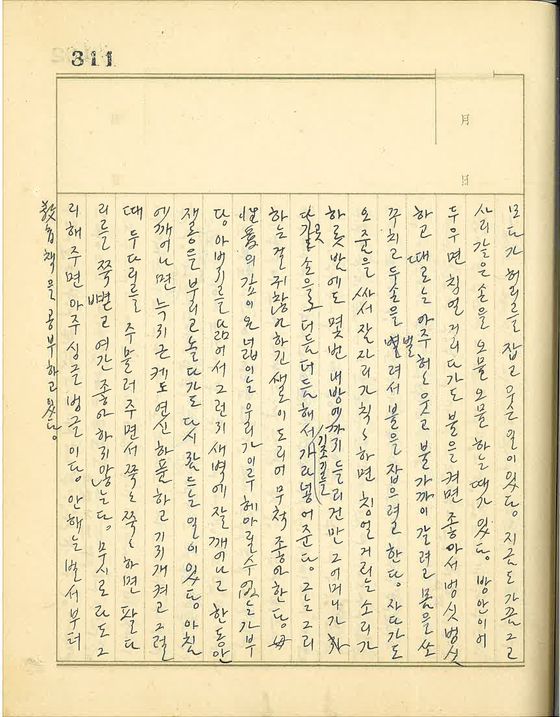 311
月
日
모다가 허리를 잡고 웃은 일이 있다. 지금도 가끔 그 고
사리 같은 손을 오물오물 하는 때가 있다. 방안이 어
두우면 칭얼거리다가도 불을 켜면 좋아서 벙싯벙싯
하고 때로는 아주 허허 웃고 불 가까이 갈려고 몸을 솟
꾸치고 두 손을 벌려서 불을 잡으려고 한다. 자다가도
오줌을 싸서 잠자리가 칙칙하면 칭얼거리는 소리가
하룻밤에도 몇번 내 방에까지 들리건만 그 어머니가
다가 곳 손을 더듬더듬해서 기저귀를 가라 넣어준다. 그는 그리
하는 걸 귀찮아 하긴 샐로이 도리어 무척 좋아한다. 母
性愛의 깊이와 넓이는 우리가 이루 헤아릴 수 없는가 부
다. 아버지를 닮어서 그런지 새벽에 잘 깨어나고 한동안
재롱을 부리고 놀다가도 다시 잠드는 일이 있다. 아침
에 깨어나면 늑지근 케도 연신 하품하고 기지개 켜고 그럴
때 두 다리를 주물러 주면서 쭉쭉 쭉쭉 하면 팔다
리를 쭉 뻗고 여간 좋아하지 않는다. 무시로라도 그
리 해주면 아주 싱글벙글이다. 안해는 벌서부터
敎育책을 공부하고 있다.